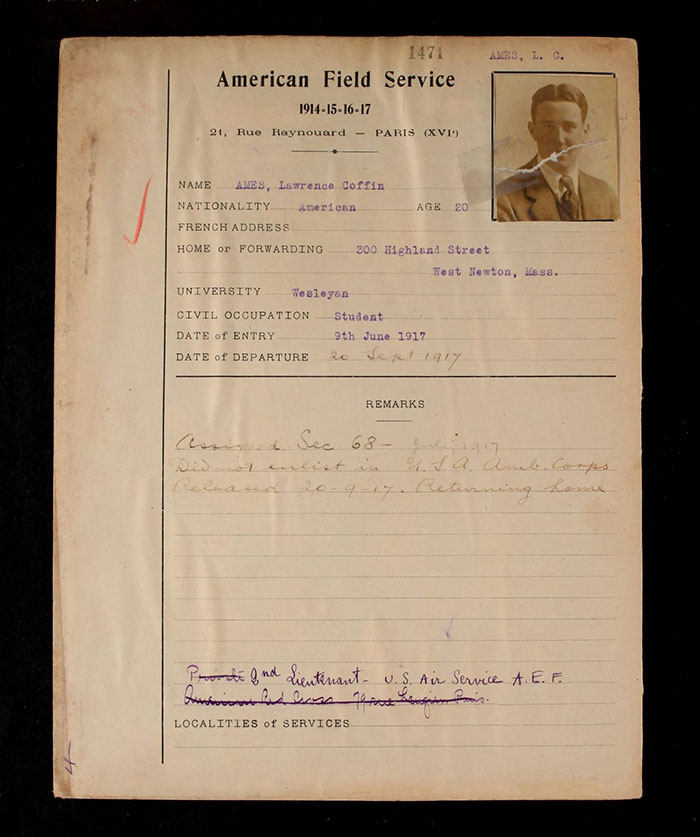 1471
AMES, L. C.
American Field Service
1914-15-16-17
21, Rue Raynouard — PARIS (XVIe)
NAME AMES, Lawrence Coffin
NATIONALITY American AGE 20
FRENCH ADDRESS
HOME or FORWARDING 300 Highland Street
West Newton, Mass.
UNIVERSITY Wesleyan
CIVIL OCCUPATION Student
DATE of ENTRY 9th June 1917
DATE of DEPARTURE 20 Sept 1917
REMARKS
Assigned Sec 68- July, 1917
Did not enlist in U.S.A. Amb. Corps
Released 20-9-17. Returning home
Private 2nd Lieutenant - U.S. Air Service A.E.F.
American Red Cross Paris.
LOCALITIES of SERVICES
4